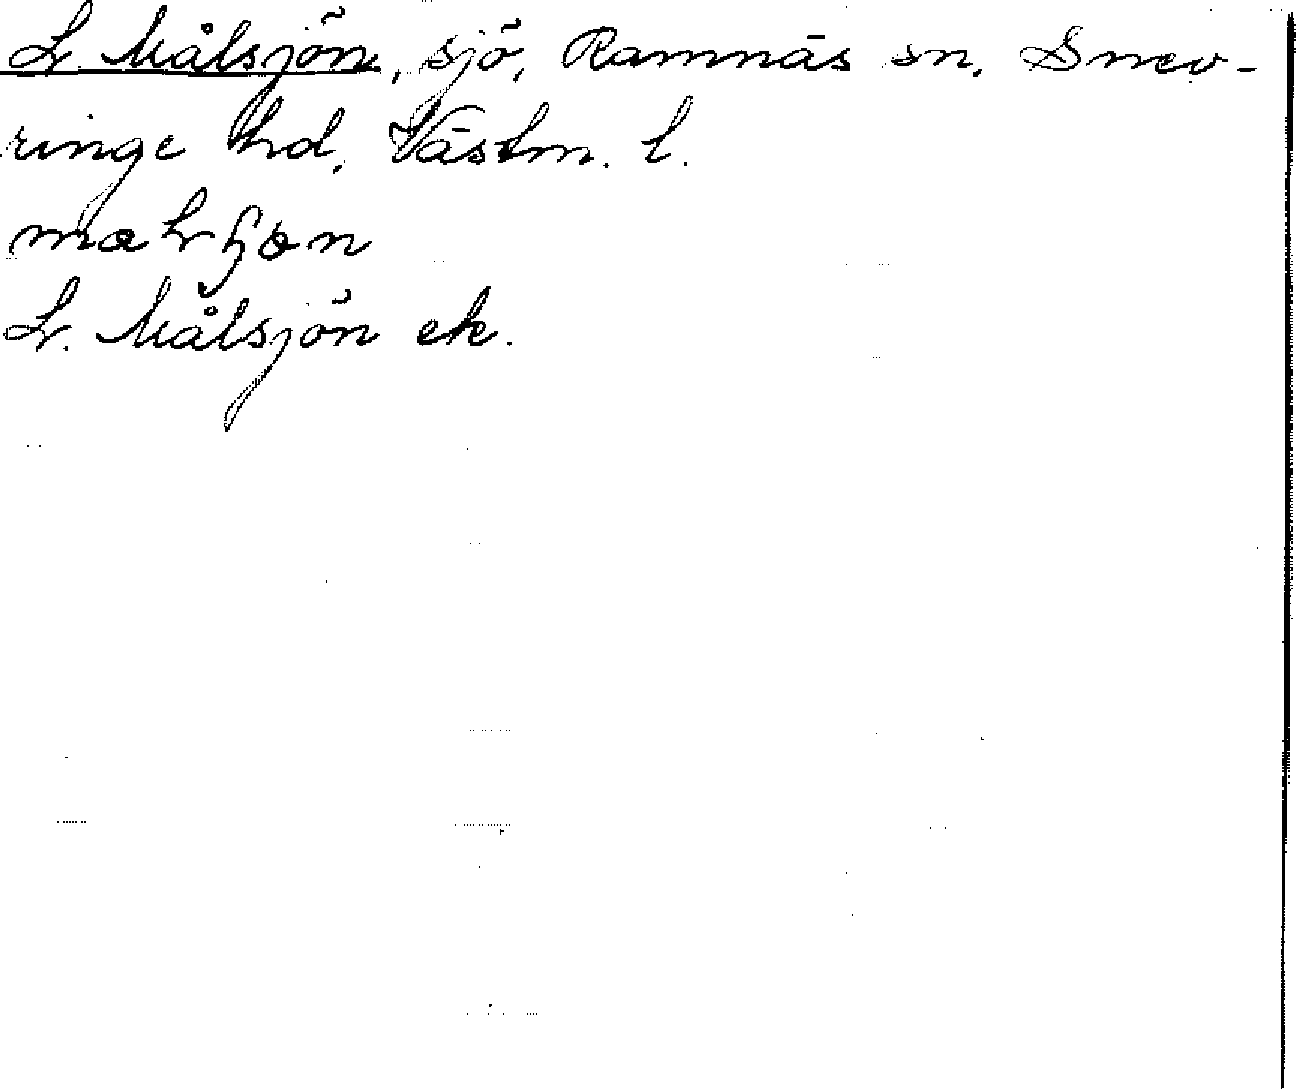 L. Målsjön, sjö, Ramnäs sn, Snev-
ringe hd, Västm. l.
L. Målsjön ek.